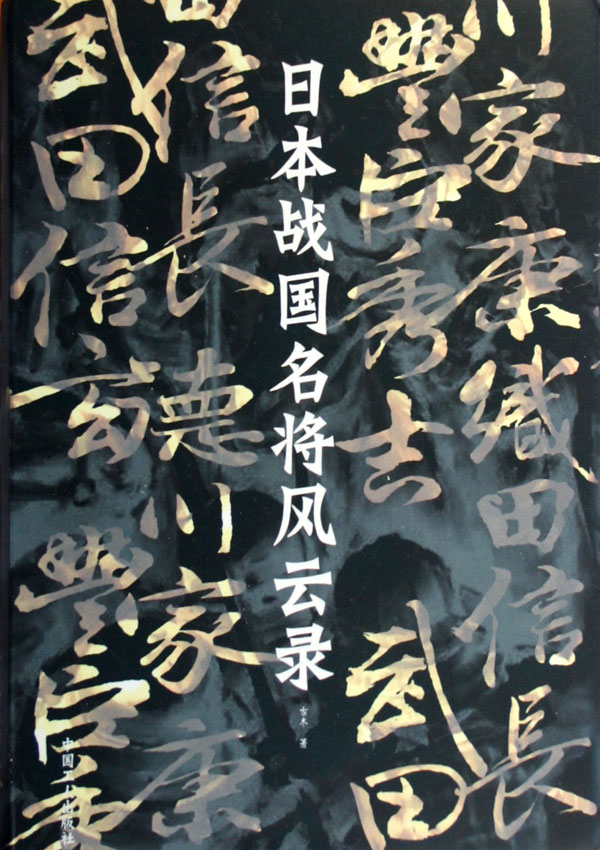 川家康織田信長
豐臣秀吉
武田
日本战国名将风云录
古木 著
田信長
德川家康
武田信玄
豐臣
中国工人出版社